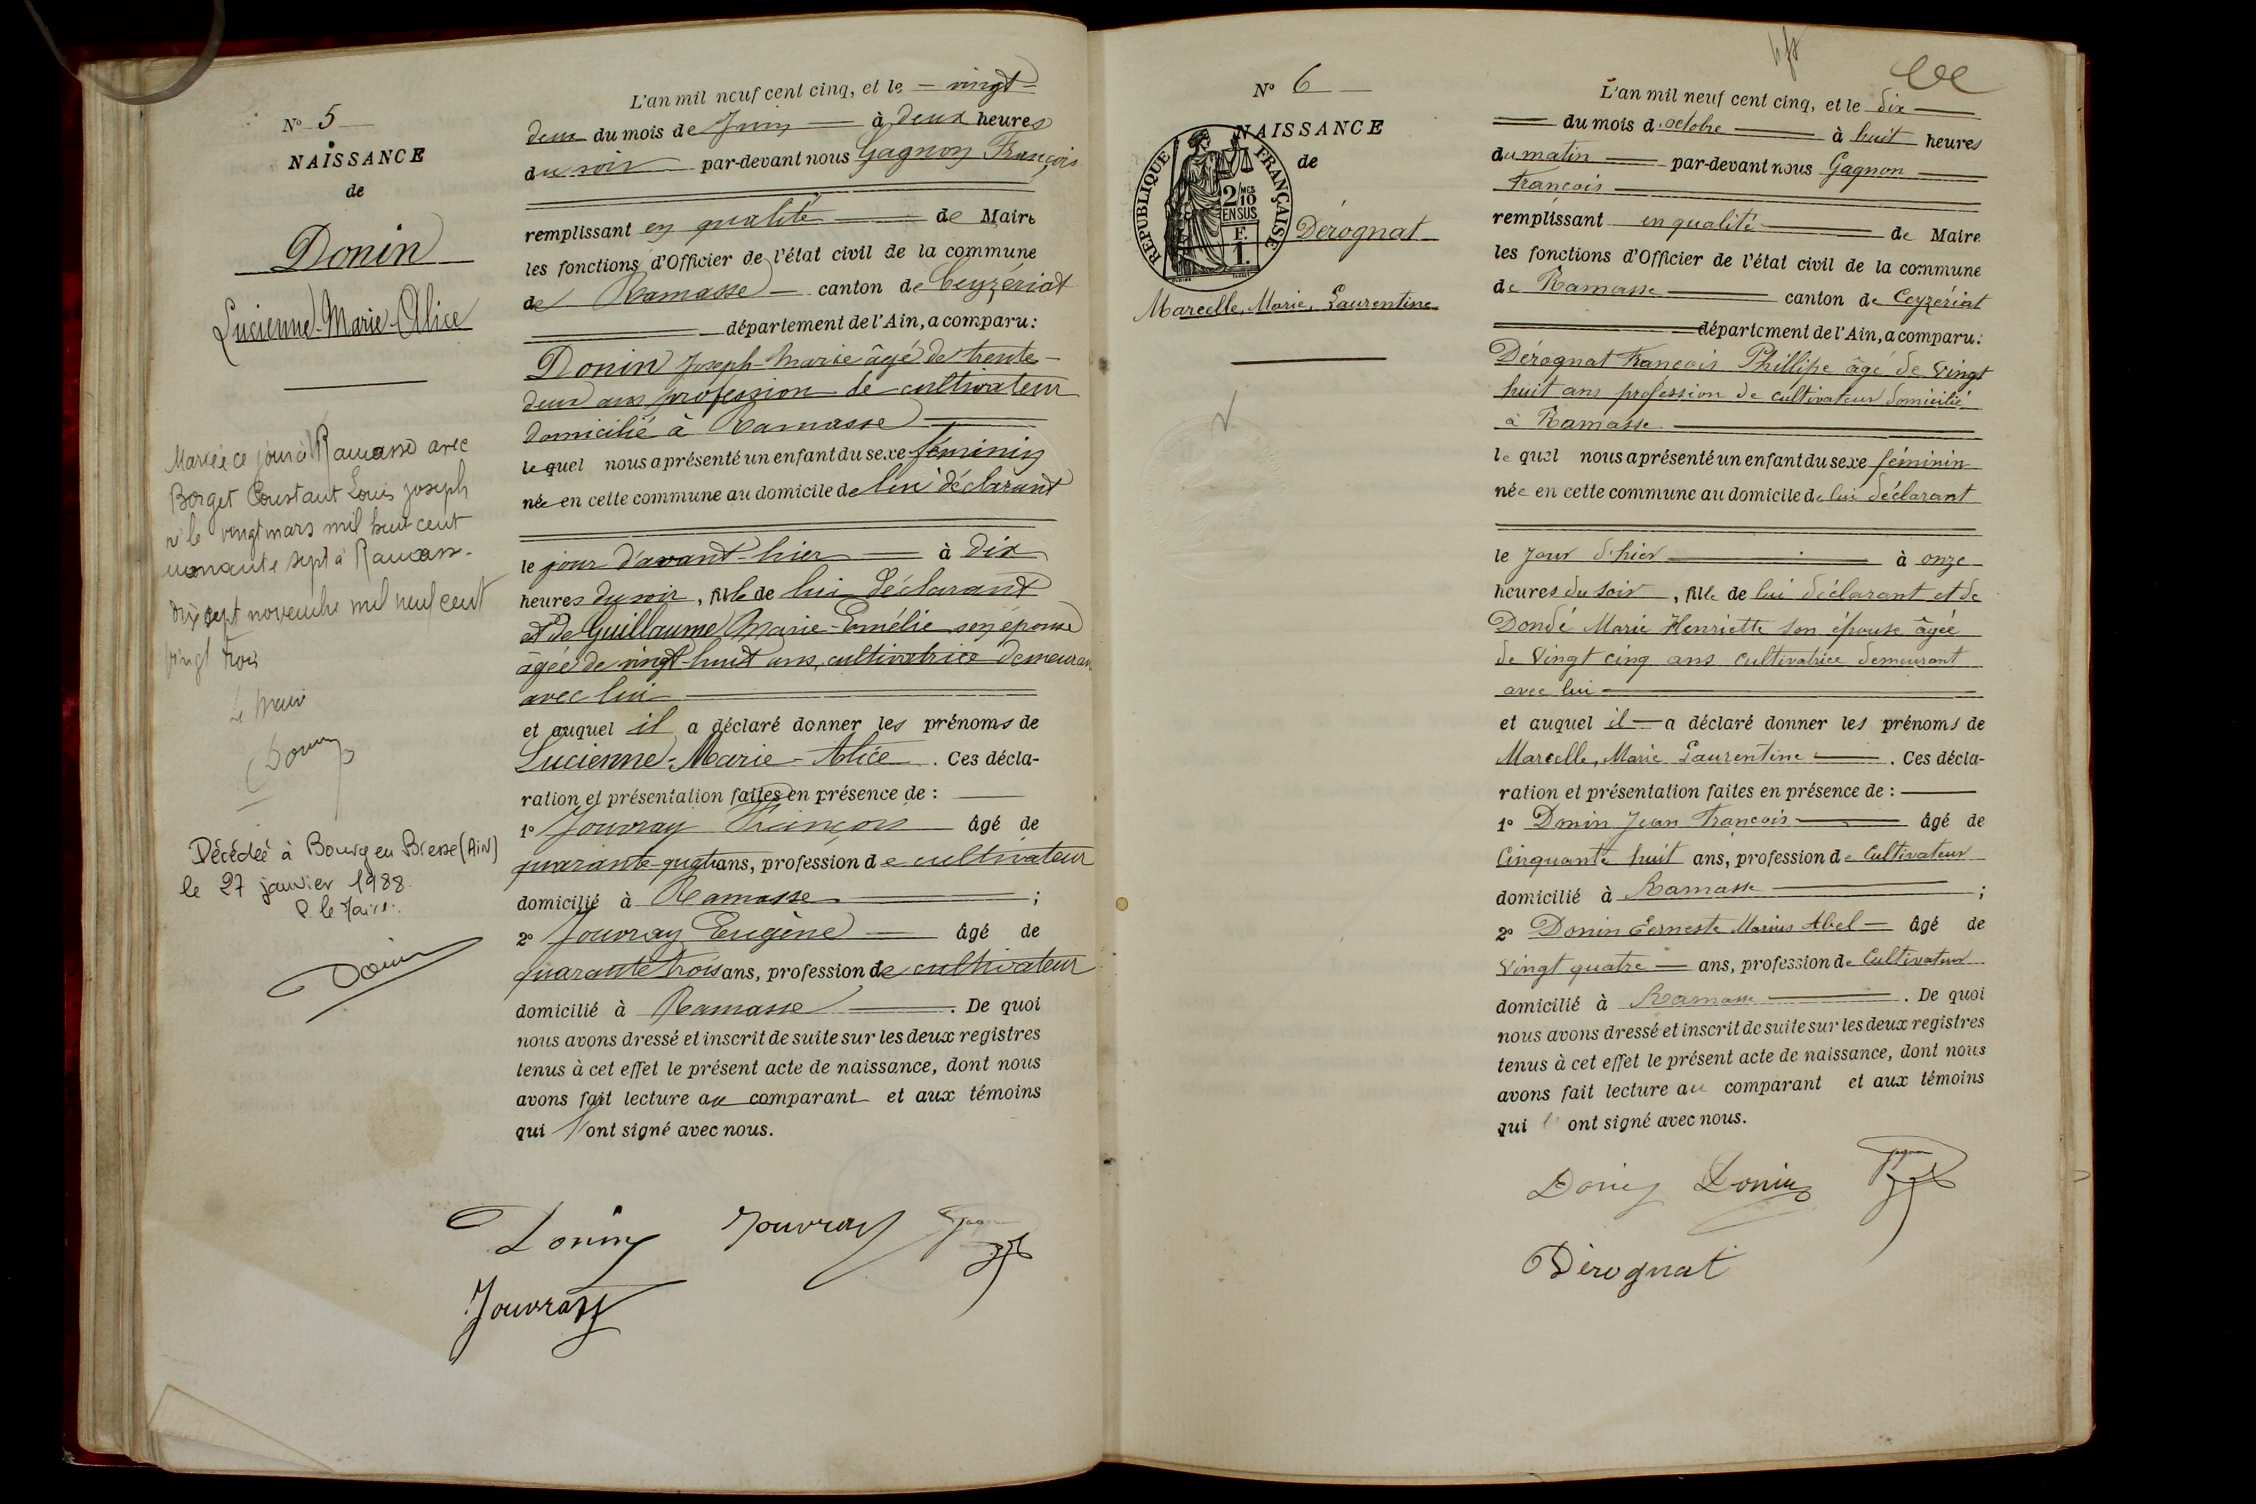 N° 5
NAISSANCE
de
Donin
Lucienne-Marie-Alice
Mariée ce jour à Ramasse avec
Borget Constant Louis Joseph
né le vingt mars mil huit cent
nonante sept à Ramasse.
dix sept novembre mil neuf cent
vingt trois
Le Maire
Décédée à Bourg en Bresse (AIN)
le 27 janvier 1988.
P. le Maire.
L'an mil neuf cent cinq, et le vingt
deux du mois de Juin à deux heures
du soir par-devant nous Gagnon François
remplissant en qualité de Maire
les fonctions d'Officier de l'état civil de la commune
de Ramasse canton de Ceyzériat
département de l'Ain, a comparu:
Donin Joseph-Marie âgé de trente-
deux ans profession de cultivateur
domicilié à Ramasse
lequel nous a présenté un enfant du sexe féminin
née en cette commune au domicile de lui déclarant
le jour d'avant-hier à dix
heures du soir, fille de lui déclarant
et de Guillaume Marie-Emélie son épouse
âgée de vingt-huit ans, cultivatrice demeurant
avec lui
et auquel il a déclaré donner les prénoms de
Lucienne-Marie-Alice. Ces décla-
ration et présentation faites en présence de :
1° Jouvray François âgé de
quarante-quatre ans, profession de cultivateur
domicilié à Ramasse ;
2° Jouvray Eugène âgé de
quarante trois ans, profession de cultivateur
domicilié à Ramasse. De quoi
nous avons dressé et inscrit de suite sur les deux registres
tenus à cet effet le présent acte de naissance, dont nous
avons fait lecture au comparant et aux témoins
qui l'ont signé avec nous.
Donin Jouvray
Jouvray
N° 6
NAISSANCE
de
RÉPUBLIQUE FRANÇAISE
2/10 MES
EN SUS
F.
1.
Dérognat
Marcelle, Marie, Laurentine
L'an mil neuf cent cinq, et le dix
du mois d'octobre à huit heures
du matin par-devant nous Gagnon
François
remplissant en qualité de Maire
les fonctions d'Officier de l'état civil de la commune
de Ramasse canton de Ceyzériat
département de l'Ain, a comparu:
Dérognat François Phillipe âgé de vingt
huit ans profession de cultivateur domicilié
à Ramasse
lequel nous a présenté un enfant du sexe féminin
née en cette commune au domicile de lui déclarant
le jour d'hier à onze
heures du soir, fille de lui déclarant et de
Dondé Marie Henriette son épouse âgée
de vingt cinq ans cultivatrice demeurant
avec lui
et auquel il a déclaré donner les prénoms de
Marcelle, Marie Laurentine. Ces décla-
ration et présentation faites en présence de :
1° Donin Jean François âgé de
Cinquante huit ans, profession de Cultivateur
domicilié à Ramasse ;
2° Donin Eerneste Marius Abel âgé de
vingt quatre ans, profession de Cultivateur
domicilié à Ramasse. De quoi
nous avons dressé et inscrit de suite sur les deux registres
tenus à cet effet le présent acte de naissance, dont nous
avons fait lecture au comparant et aux témoins
qui l'ont signé avec nous.
Donin Donin
Dérognat